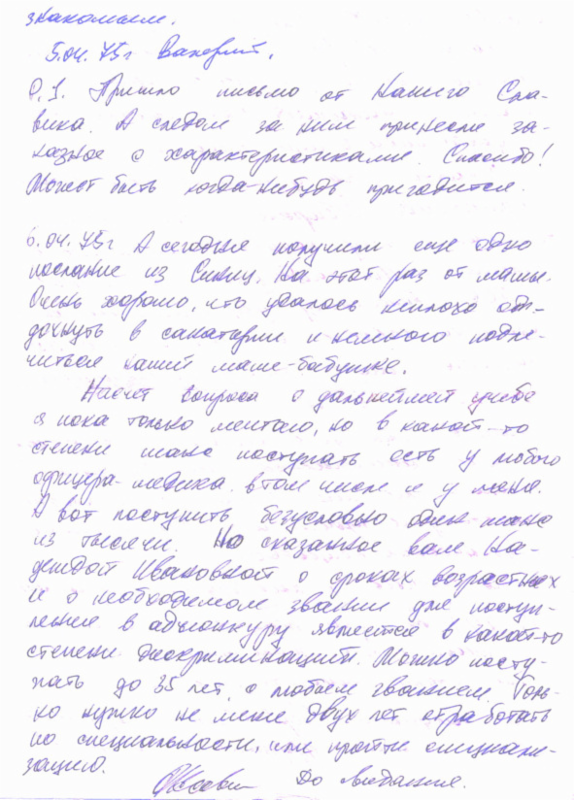 знакомым.
5.04.75г Валерий.
P.S. Пришло письмо от нашего Сла-
вика. А следом за ним принесли за-
казное с характеристиками. Спасибо!
Может быть когда-нибудь пригодится.
6.04.75г А сегодня получили еще одно
послание из Синиц. На этот раз от мамы.
Очень хорошо, что удалось неплохо от-
дохнуть в санатории и немного подле-
читься нашей маме-бабушке.
Насчет вопроса о дальнейшей учебе
я пока только мечтаю, но в какой-то
степени шанс поступать есть у любого
офицера-медика в том числе и у меня.
А вот поступить безусловно один шанс
из тысячи. Но сказанное вам На-
деждой Ивановной о сроках возрастных
и о необходимом звании для поступ-
ления в адъюнктуру является в какой-то
степени дискриминацией. Можно посту-
пать до 35 лет, с любым званием. Толь-
ко нужно не менее двух лет отработать
по специальности, или пройти специали-
зацию.
До свидания.